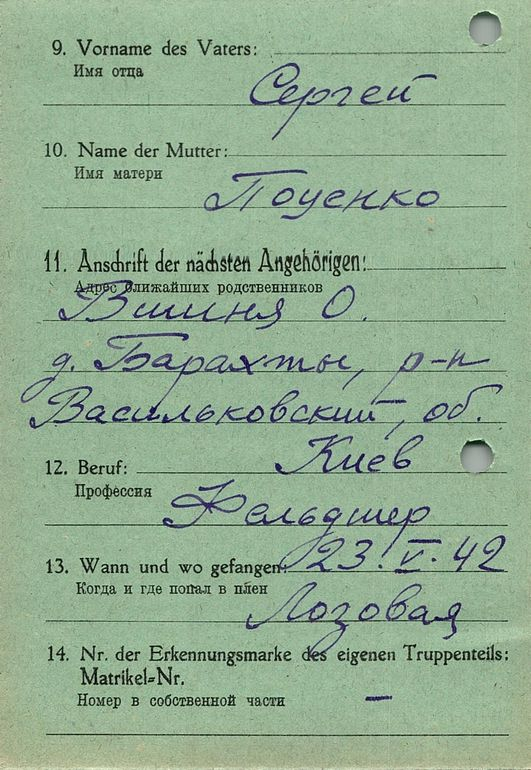 9. Vorname des Vaters:
Имя отца
Сергей
10. Name der Mutter:
Имя матери
Поценко
11. Anschrift der nächsten Angehörigen:
Адрес ближайших родственников
О.
д. Барахты, р-н
Васильковский, об.
Киев
12. Beruf:
Профессия
Фельдшер
13. Wann und wo gefangen:
23. V. 42
Когда и где попал в плен
Лозовая
14. Nr. der Erkennungsmarke des eigenen Truppenteils:
Matrikel-Nr.
Номер в собственной части
—